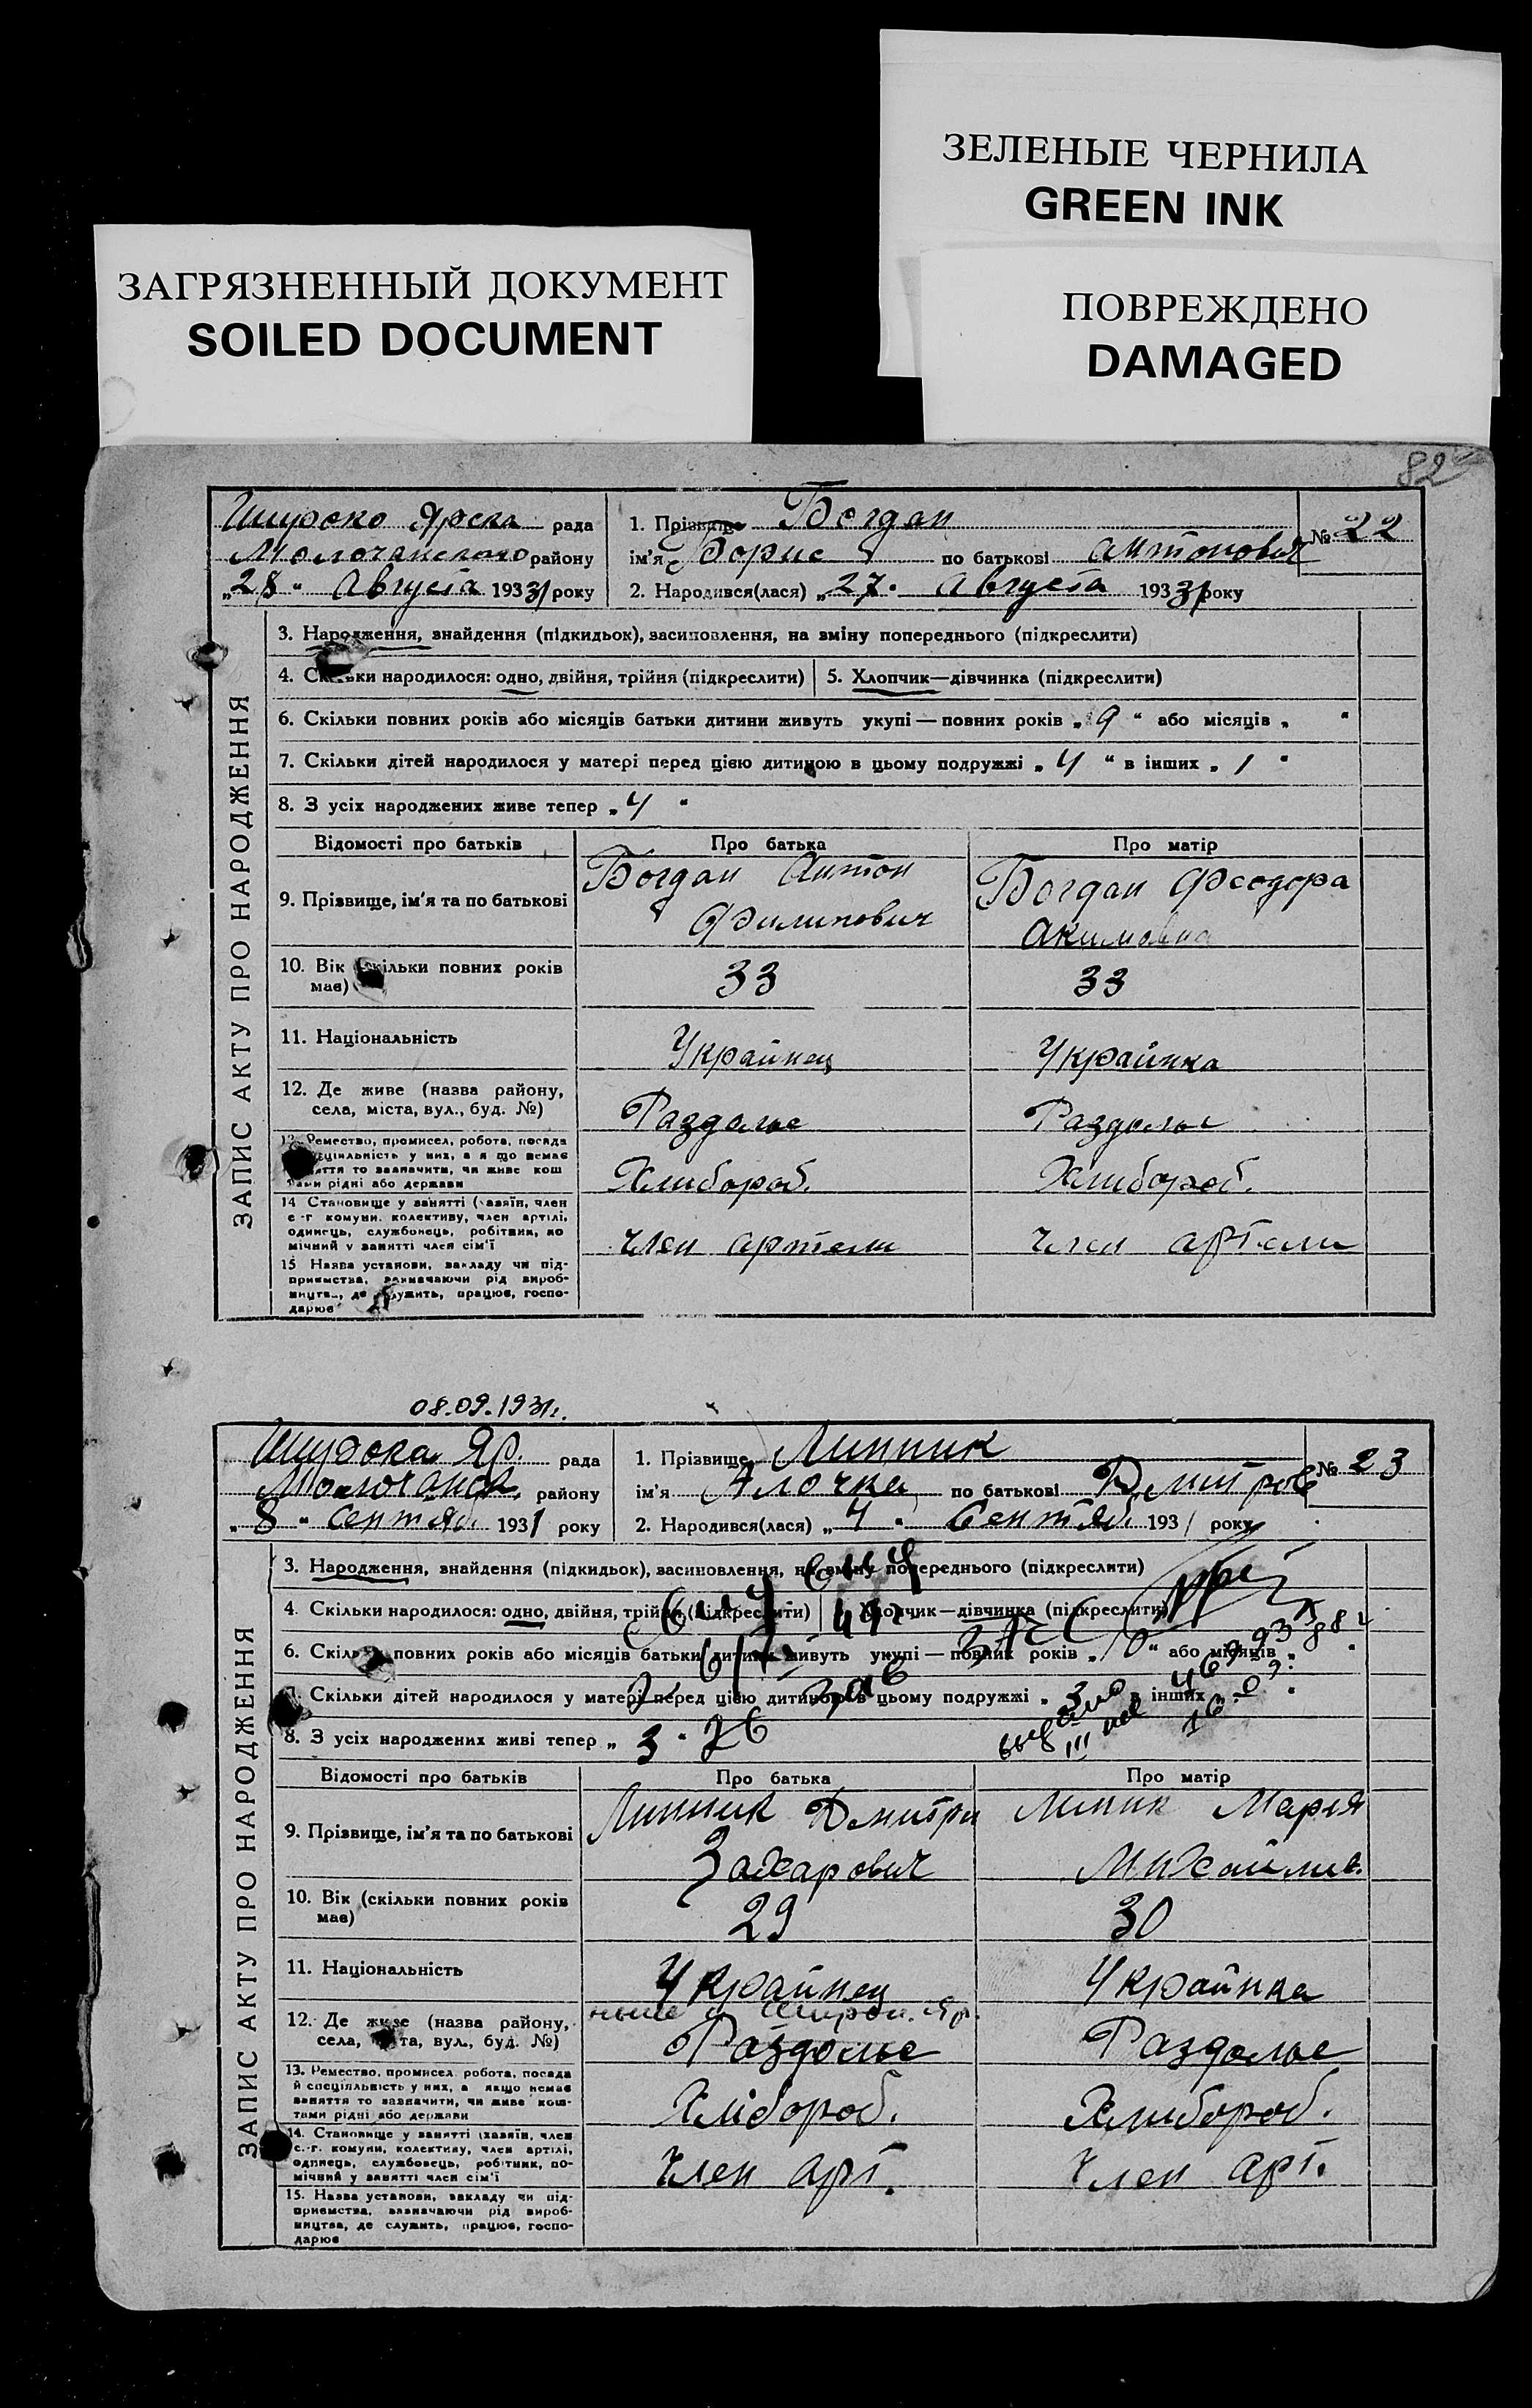 ЗЕЛЕНЫЕ ЧЕРНИЛА
GREEN INK
ЗАГРЯЗНЕННЫЙ ДОКУМЕНТ
SOILED DOCUMENT
ПОВРЕЖДЕНО
DAMAGED
82
Широко Ярска рада
Молочанского району
„28" Августа 1931 року
1. Прізвище Богдан
ім'я Борис по батькові Антонович
№ 22
2. Народився(лася) „27" Августа 1931 року
ЗАПИС АКТУ ПРО НАРОДЖЕННЯ
3. Народження, знайдення (підкидьок), засиновлення, на зміну попереднього (підкреслити)
4. Скільки народилося: одно, двійня, трійня (підкреслити) 5. Хлопчик—дівчинка (підкреслити)
6. Скільки повних років або місяців батьки дитини живуть укупі — повних років „9" або місяців „ "
7. Скільки дітей народилося у матері перед цією дитиною в цьому подружжі „4" в інших „1"
8. З усіх народжених живе тепер „4"
Відомості про батьків Про батька Про матір
9. Прізвище, ім'я та по батькові
Богдан Антон
Филипович
Богдан Феодора
Акимовна
10. Вік (скільки повних років
має)
33 33
11. Національність
Украйнец Украйнка
12. Де живе (назва району,
села, міста, вул., буд. №)
Раздолье Раздолье
13. Ремество, промисел, робота, посада
й спеціяльність у них, а якщо немає
заняття то зазначити, чи живе кош
тами рідні або держави
Хлибороб. Хлибороб.
14 Становище у занятті (хазяїн, член
с.-г. комуни, колективу, член артілі,
одинець, службовець, робітник, по
мічний у занятті член сім'ї
Член артели Член артели
15 Назва установи, закладу чи під-
приємства, зазначаючи рід вироб-
ництва, де служить, працює, госпо-
дарює
08.09.1931г.
Широка Яр. рада
Молочанск. району
„8" Сентяб. 1931 року
1. Прізвище Линник
ім'я Алочка по батькові Дмитров
№ 23
2. Народився(лася) „4" Сентяб. 1931 року
ЗАПИС АКТУ ПРО НАРОДЖЕННЯ
3. Народження, знайдення (підкидьок), засиновлення, на зміну попереднього (підкреслити)
4. Скільки народилося: одно, двійня, трійня (підкреслити) Хлопчик—дівчинка (підкреслити)
6. Скільки повних років або місяців батьки дитини живуть укупі — повних років „10" або місяців „ "
7. Скільки дітей народилося у матері перед цією дитиною в цьому подружжі „3" в інших „ "
8. З усіх народжених живі тепер „3"
Відомості про батьків Про батька Про матір
9. Прізвище, ім'я та по батькові
Линник Дмитри
Захарович
Линик Мария
Михайлив.
10. Вік (скільки повних років
має)
29 30
11. Національність
Украйнец Украйнка
12. Де живе (назва району,
села, міста, вул., буд. №)
ныне с. Широк. Яр.
Раздолье Раздолье
13. Ремество, промисел, робота, посада
й спеціяльність у них, а якщо немає
заняття то зазначити, чи живе кош-
тами рідні або держави
Хлібороб. Хлибороб.
14. Становище у занятті (хазяїн, член
с.-г. комуни, колективу, член артілі,
одинець, службовець, робітник, по-
мічний у занятті член сім'ї
Член арт. Член арт.
15. Назва установи, закладу чи під-
приємства, зазначаючи рід вироб-
ництва, де служить, працює, госпо-
дарює